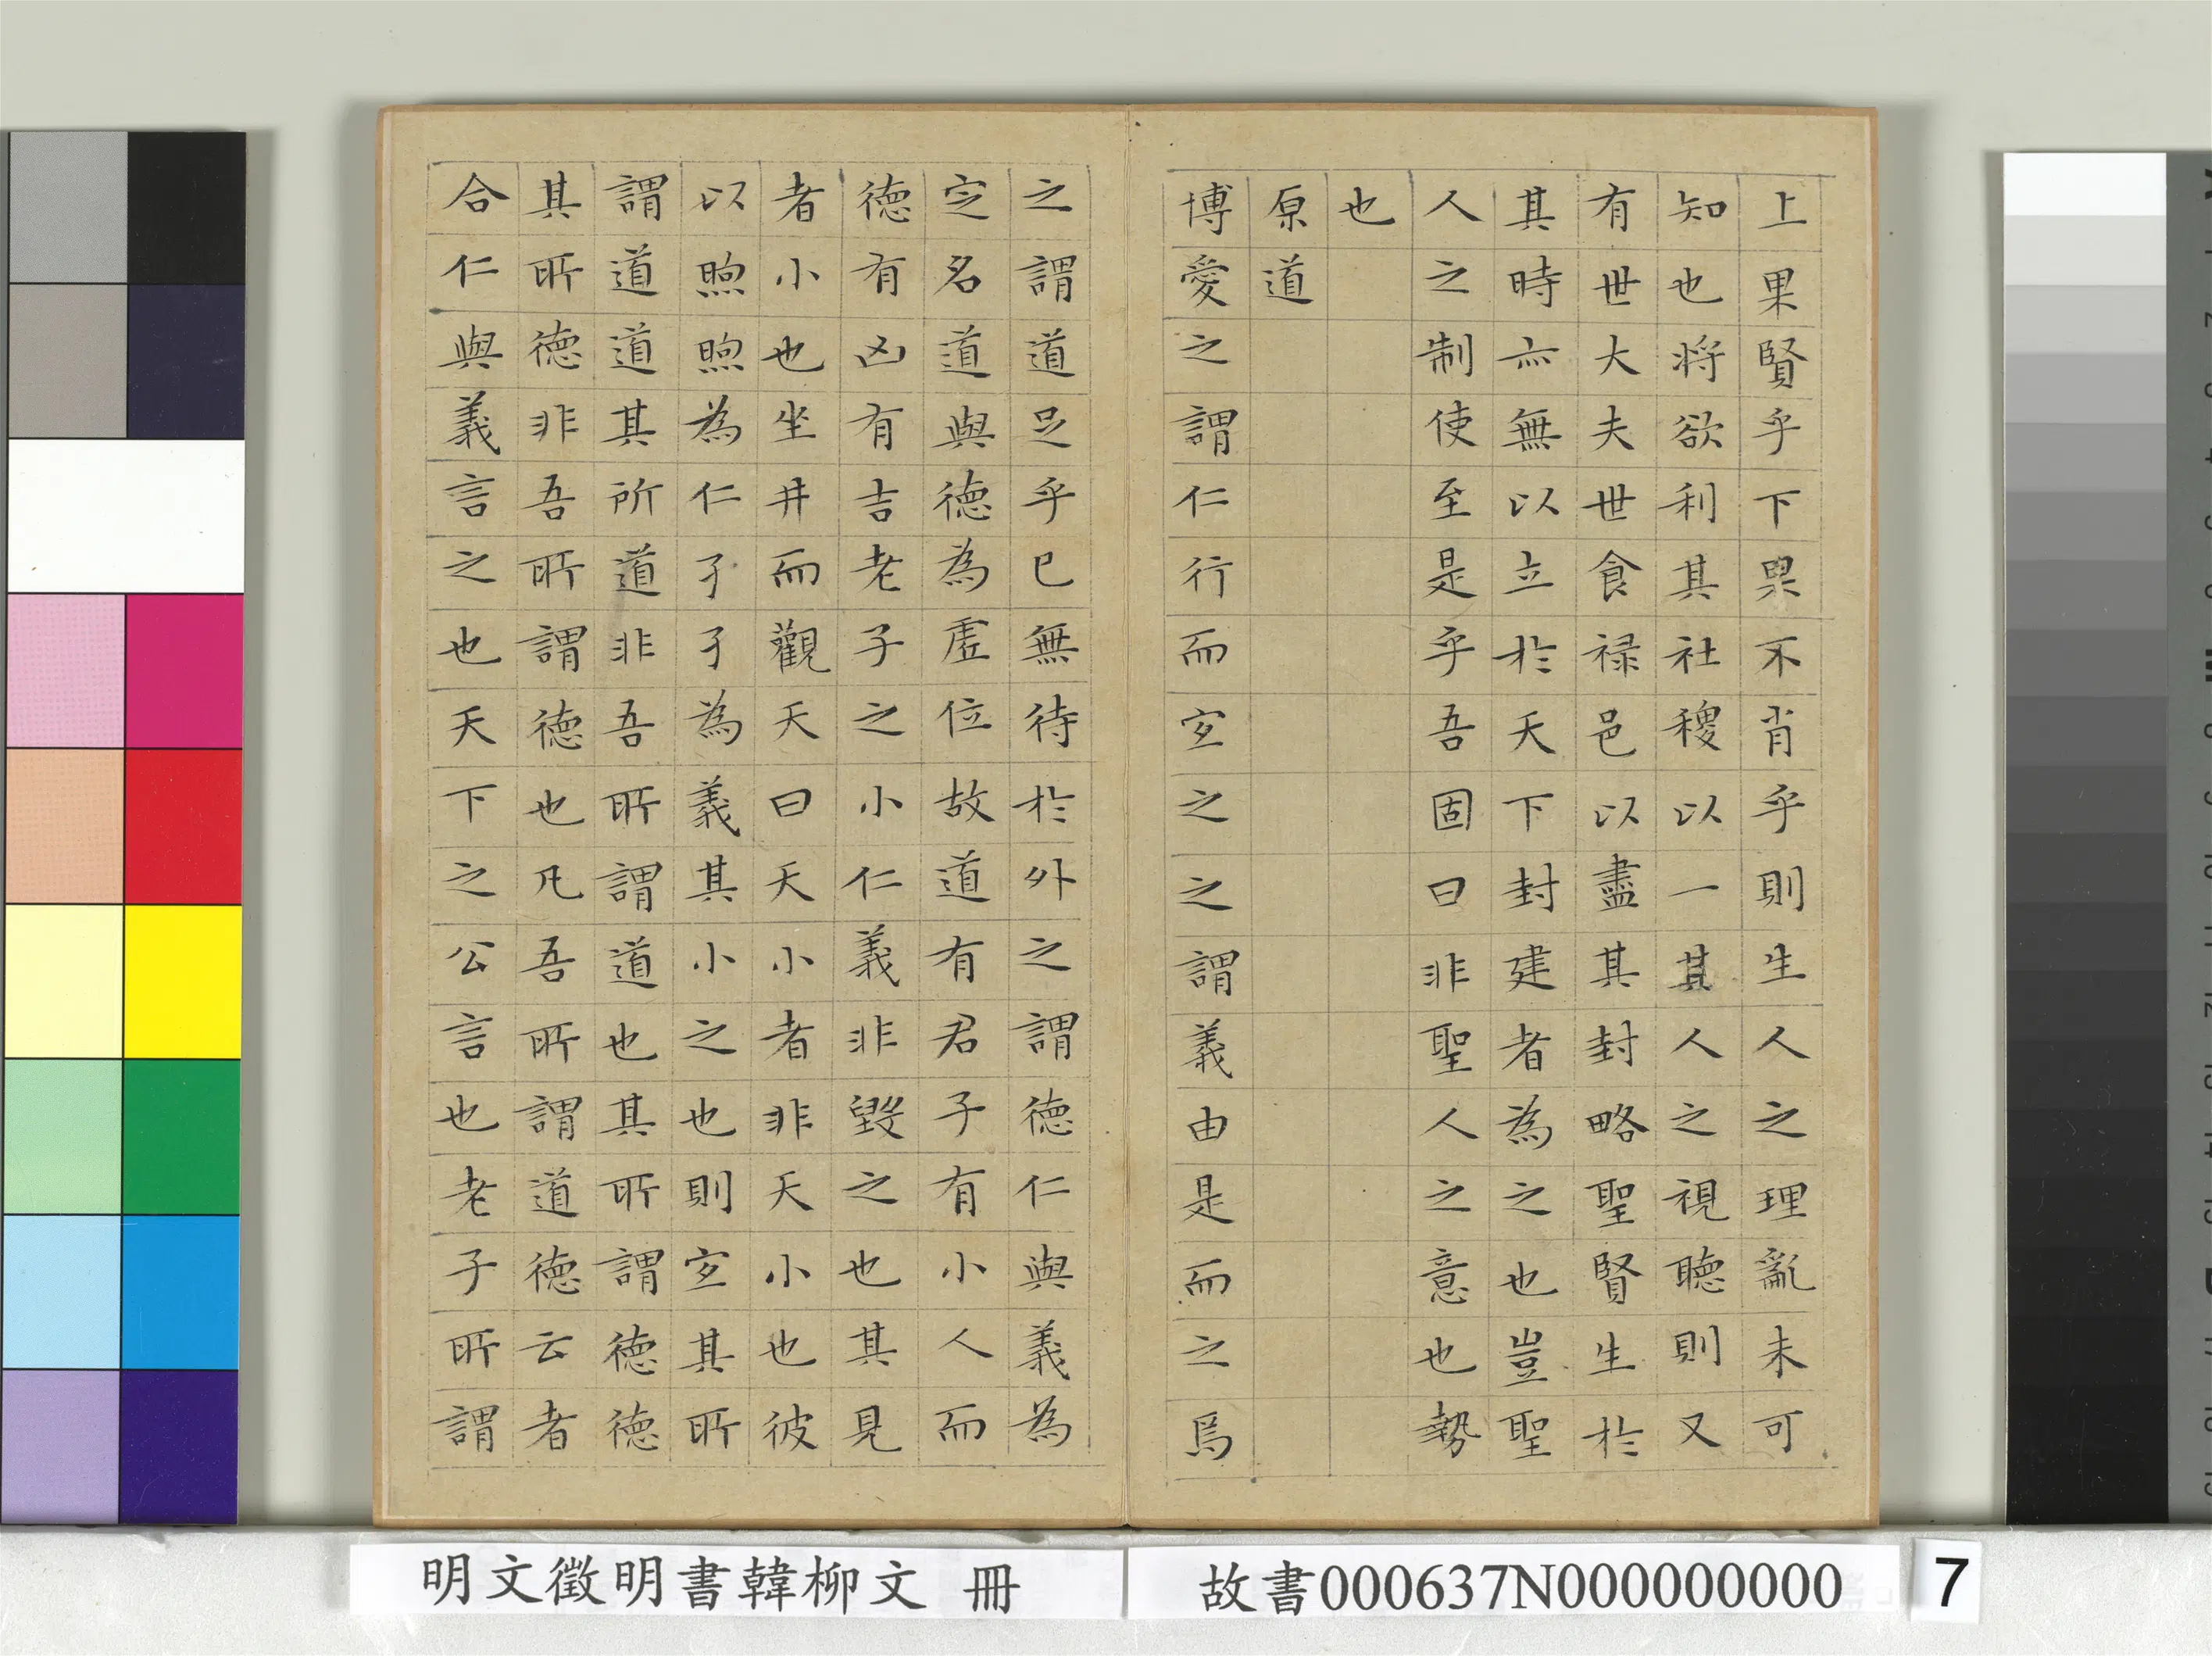 上果賢乎下果不肖乎則生人之理亂未可
知也將欲利其社稷以一其人之視聽則又
有世大夫世食祿邑以盡其封略聖賢生於
其時亦無以立於天下封建者為之也豈聖
人之制使至是乎吾固曰非聖人之意也勢
也
原道
博愛之謂仁行而宜之之謂義由是而之焉
之謂道足乎已無待於外之謂德仁與義為
定名道與德為虛位故道有君子有小人而
德有凶有吉老子之小仁義非毀之也其見
者小也坐井而觀天曰天小者非天小也彼
以煦煦為仁孑孑為義其小之也則宜其所
謂道道其所道非吾所謂道也其所謂德德
其所德非吾所謂德也凡吾所謂道德云者
合仁與義言之也天下之公言也老子所謂
明文徵明書韓柳文 冊
故書000637N000000000
7